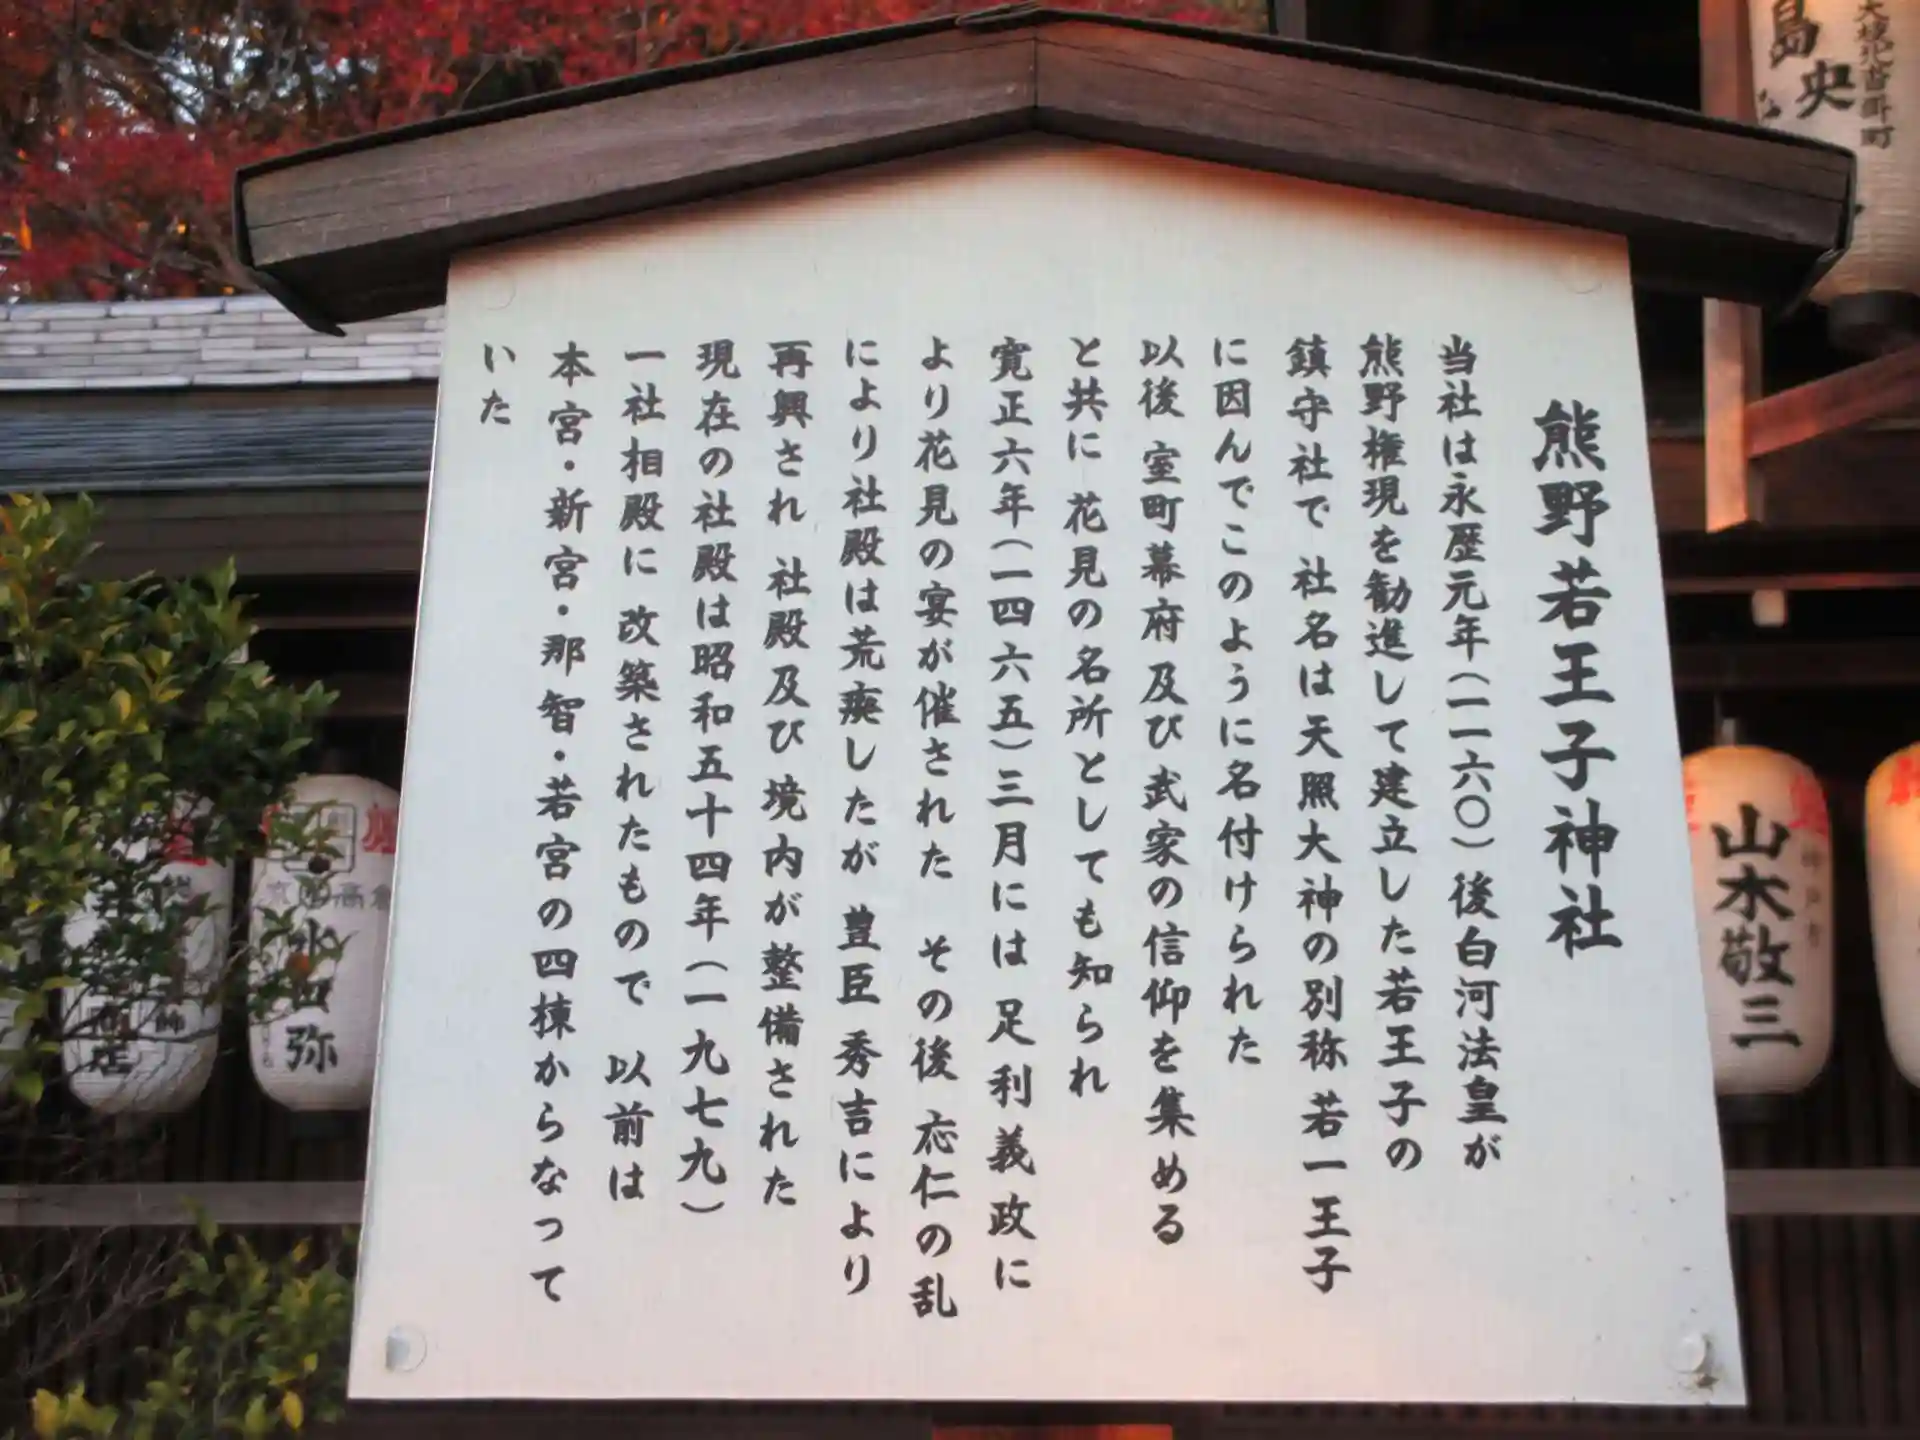 熊野若王子神社
当社は永歴元年(一一六〇)後白河法皇が
熊野権現を勧進して建立した若王子の
鎮守社で 社名は天照大神の別称 若一王子
に因んでこのように名付けられた
以後 室町幕府 及び 武家の信仰を集める
と共に 花見の名所としても知られ
寛正六年(一四六五)三月には 足利義政に
より花見の宴が催された その後 応仁の乱
により社殿は荒廃したが 豊臣秀吉により
再興され 社殿及び 境内が整備された
現在の社殿は昭和五十四年(一九七九)
一社相殿に 改築されたもので 以前は
本宮・新宮・那智・若宮の四棟からなって
いた
島央
山木敬三
商店
弥